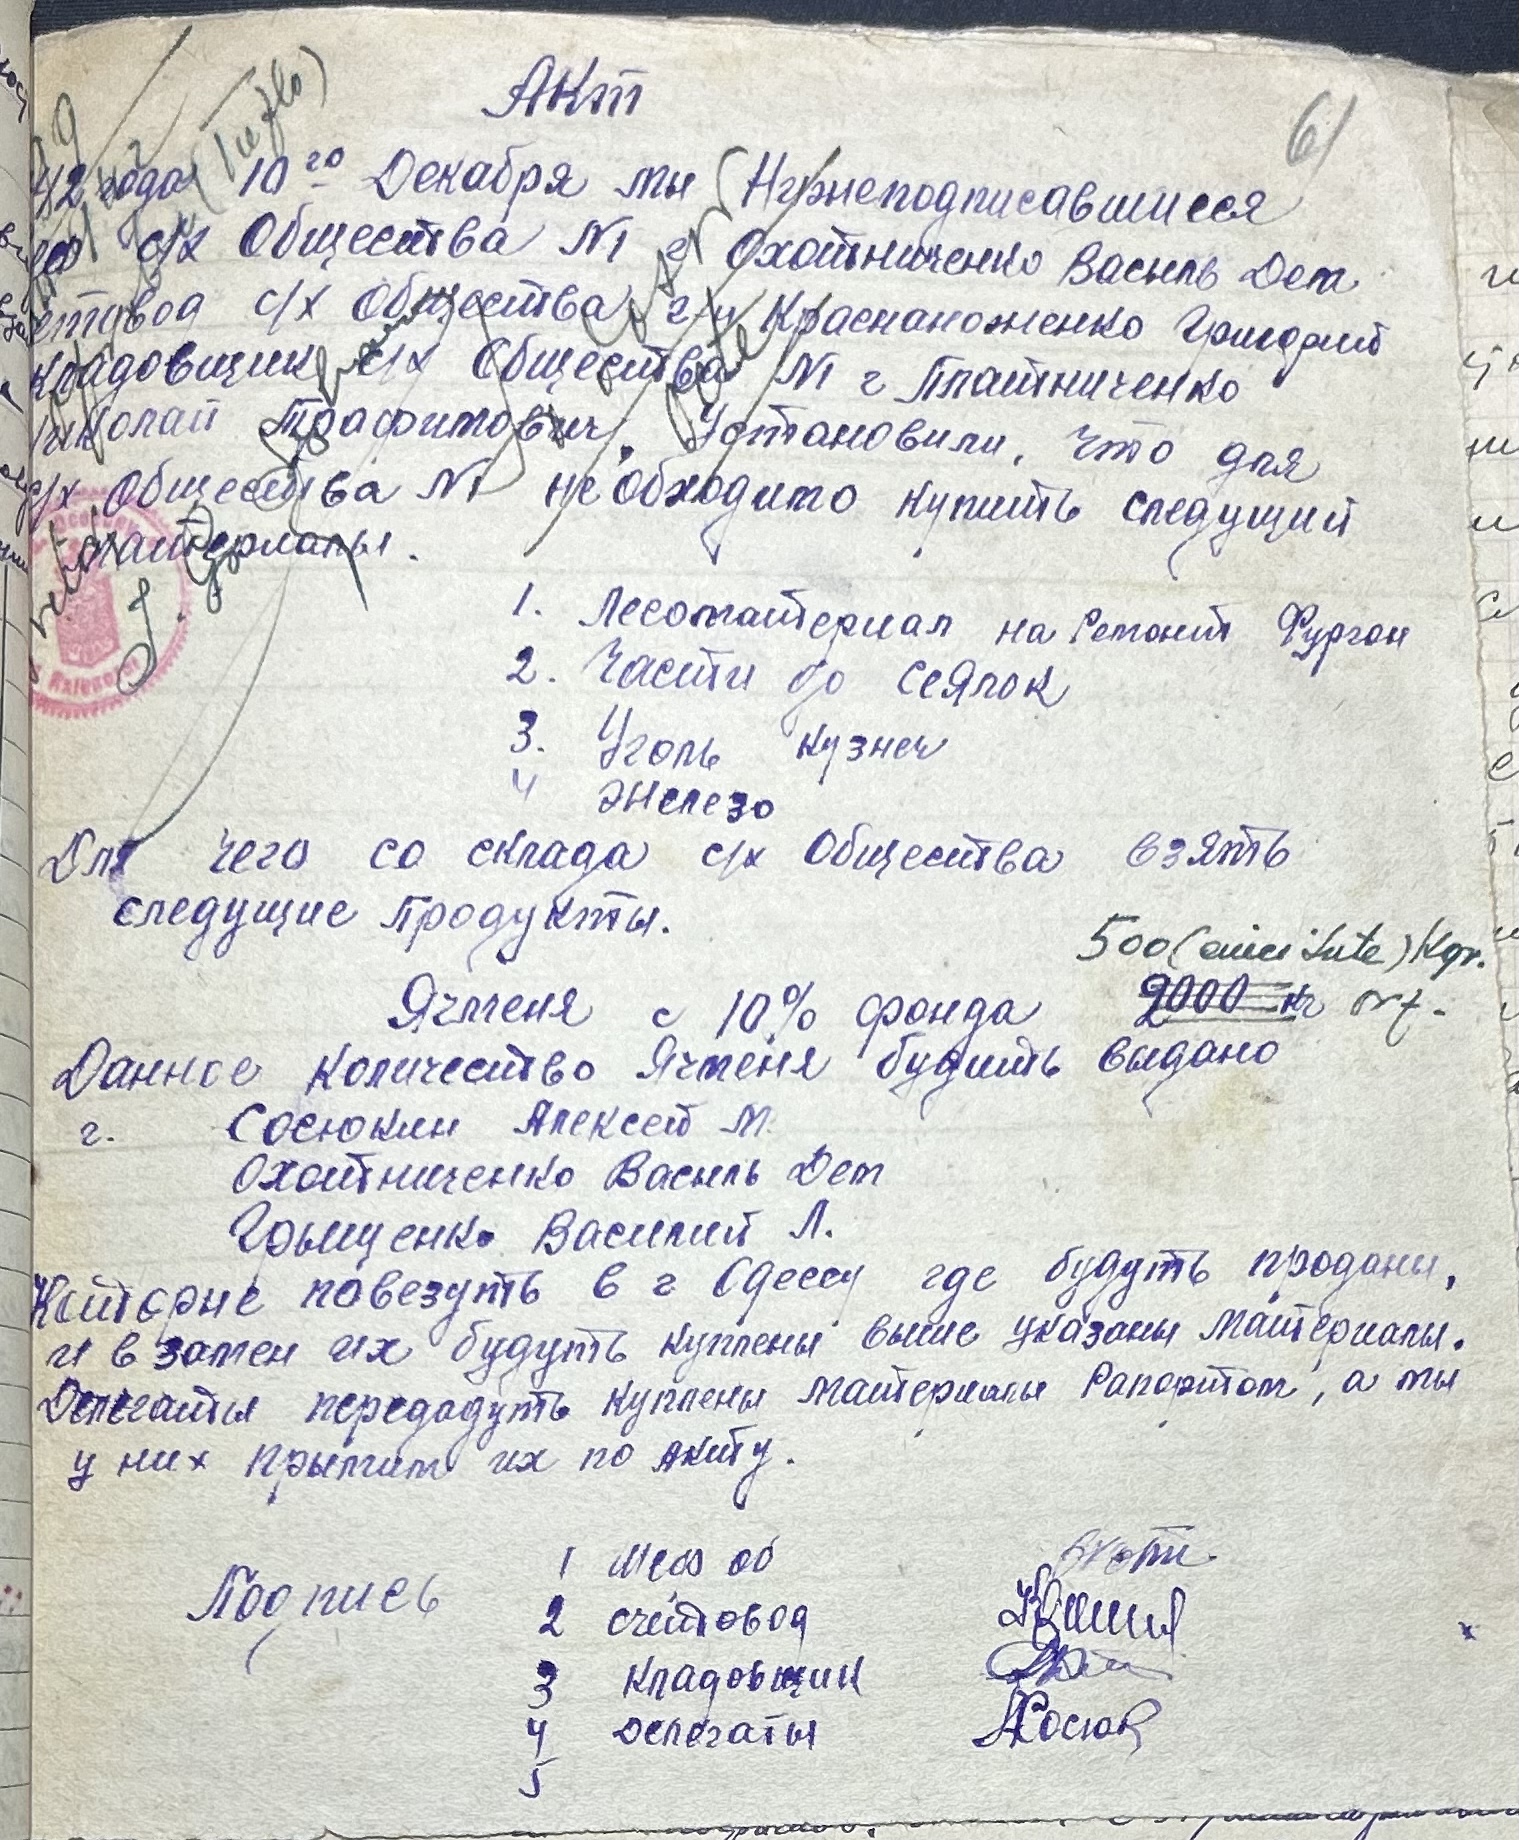 61
Акт
42 года 10го Декабря мы Нгжнеподписавшиеся
с/х Общества N1 г Охотниченко Василь Дем
с/х Общества г-н Краснаноженко Григорий
Кладовщик с/х Общества N1 г Платниченко
Николай Трафимович. Установили, что для
с/х Общества N1 необходимо купить следущий
материалы.
1. Лесоматериал на Ремонт Фургон
2. Части до Сеялок
3. Уголь кузнеч
4 Железо
Для чего со склада с/х Общества взять
следущие продукты.
500 (cinci sute) Kgr.
Ячменя с 10% фонда 2000 кг
Данное Количество Ячменя будить выдано
г. Сосюкин Алексей М.
Охотниченко Василь Дем
Грыщенко Василий Л.
Которые повезуть в г Одессу где будуть проданы,
и в замен их будуть куплены выше указаны Материалы.
Делегаты передадуть куплены материалы Рапортом, а мы
у них прыймим их по акту.
Подпись
1 Шеф об Охотн.
2 счётовод
3 Кладовщик
4 Делегаты АСосюк
5